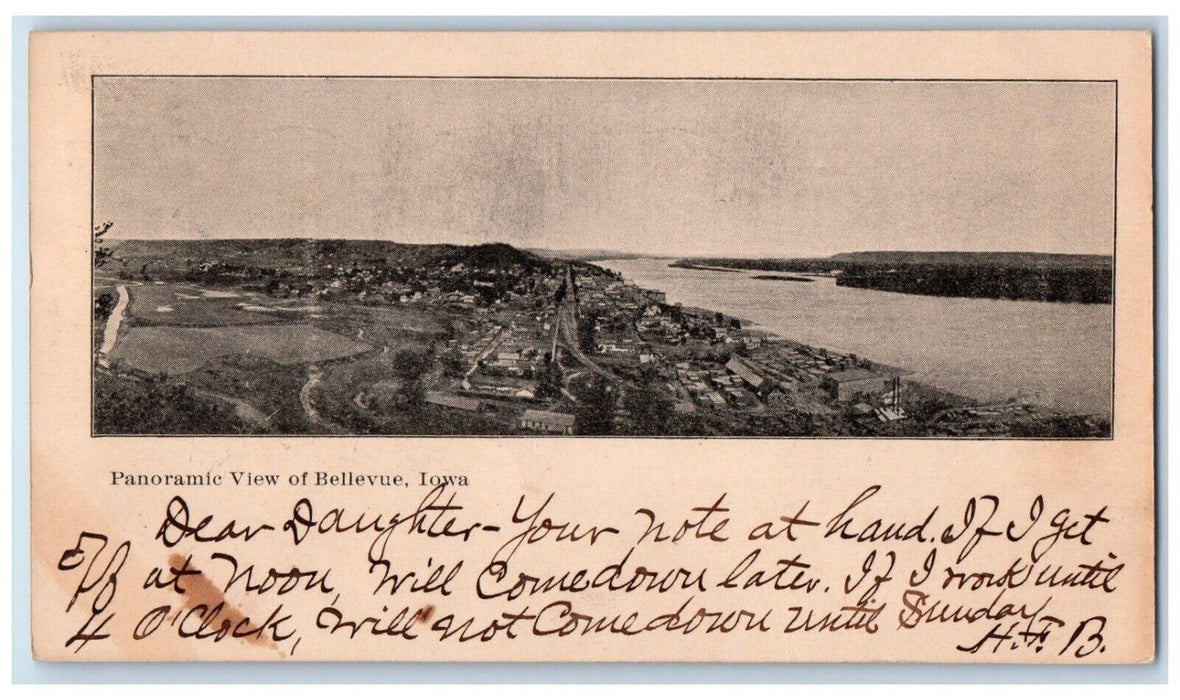 Panoramic View of Bellevue, Iowa
Dear Daughter - Your note at hand. If I get
off at Noon, Will Come down later. If I work until
4 O'Clock, Will not Come down until Sunday
H.F. B.